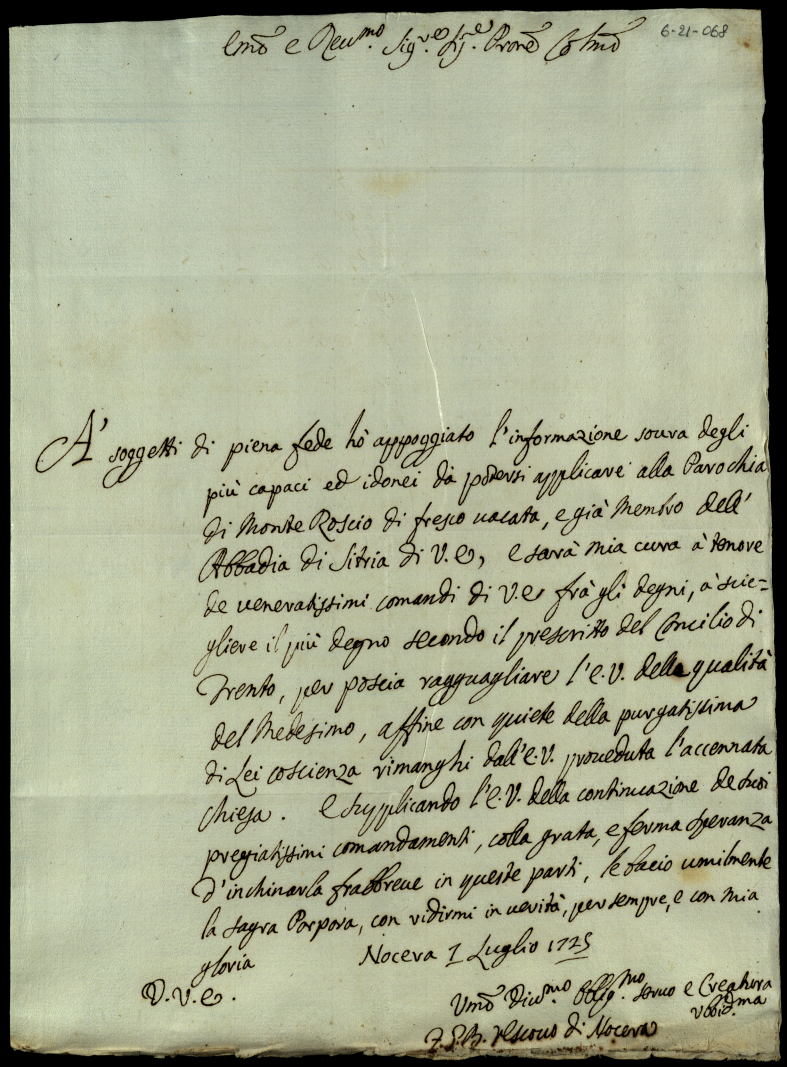 Emõ e Reu.mo Sig.re Sig.re Prone Colmõ
6-21-068
A' soggetti di piena fede hò appoggiato l'informazione soura degli
più capaci ed idonei da potersi applicare alla Parochia
di Monte Roscio di fresco uacata, e già Membro dell'
Abbadia di Sitria di V.E., e sarà mia cura à tenore
de ueneratissimi comandi di V.E. frà gli degni, à scie=
gliere il più degno secondo il prescritto del Concilio di
Trento, per poscia ragguagliare l'E.V. della qualità
del Medesimo, affine con quiete della purgatissima
di Lei coscienza rimanghi dall'E.V. proueduta l'accennata
Chiesa. E supplicando l'E.V. della continuazione de suoi
pregiatissimi comandamenti, colla grata, e ferma speranza
d'inchinarla frabbreue in queste parti, le bacio umilmente
la sagra Porpora, con ridirmi in uerità, per sempre, e con mia
gloria Nocera 1 Luglio 1725
D.V.E.
Umõ Diu.mo Oblig.mo seruo e Creatura
ubbid.ma
Vescouo di Nocera